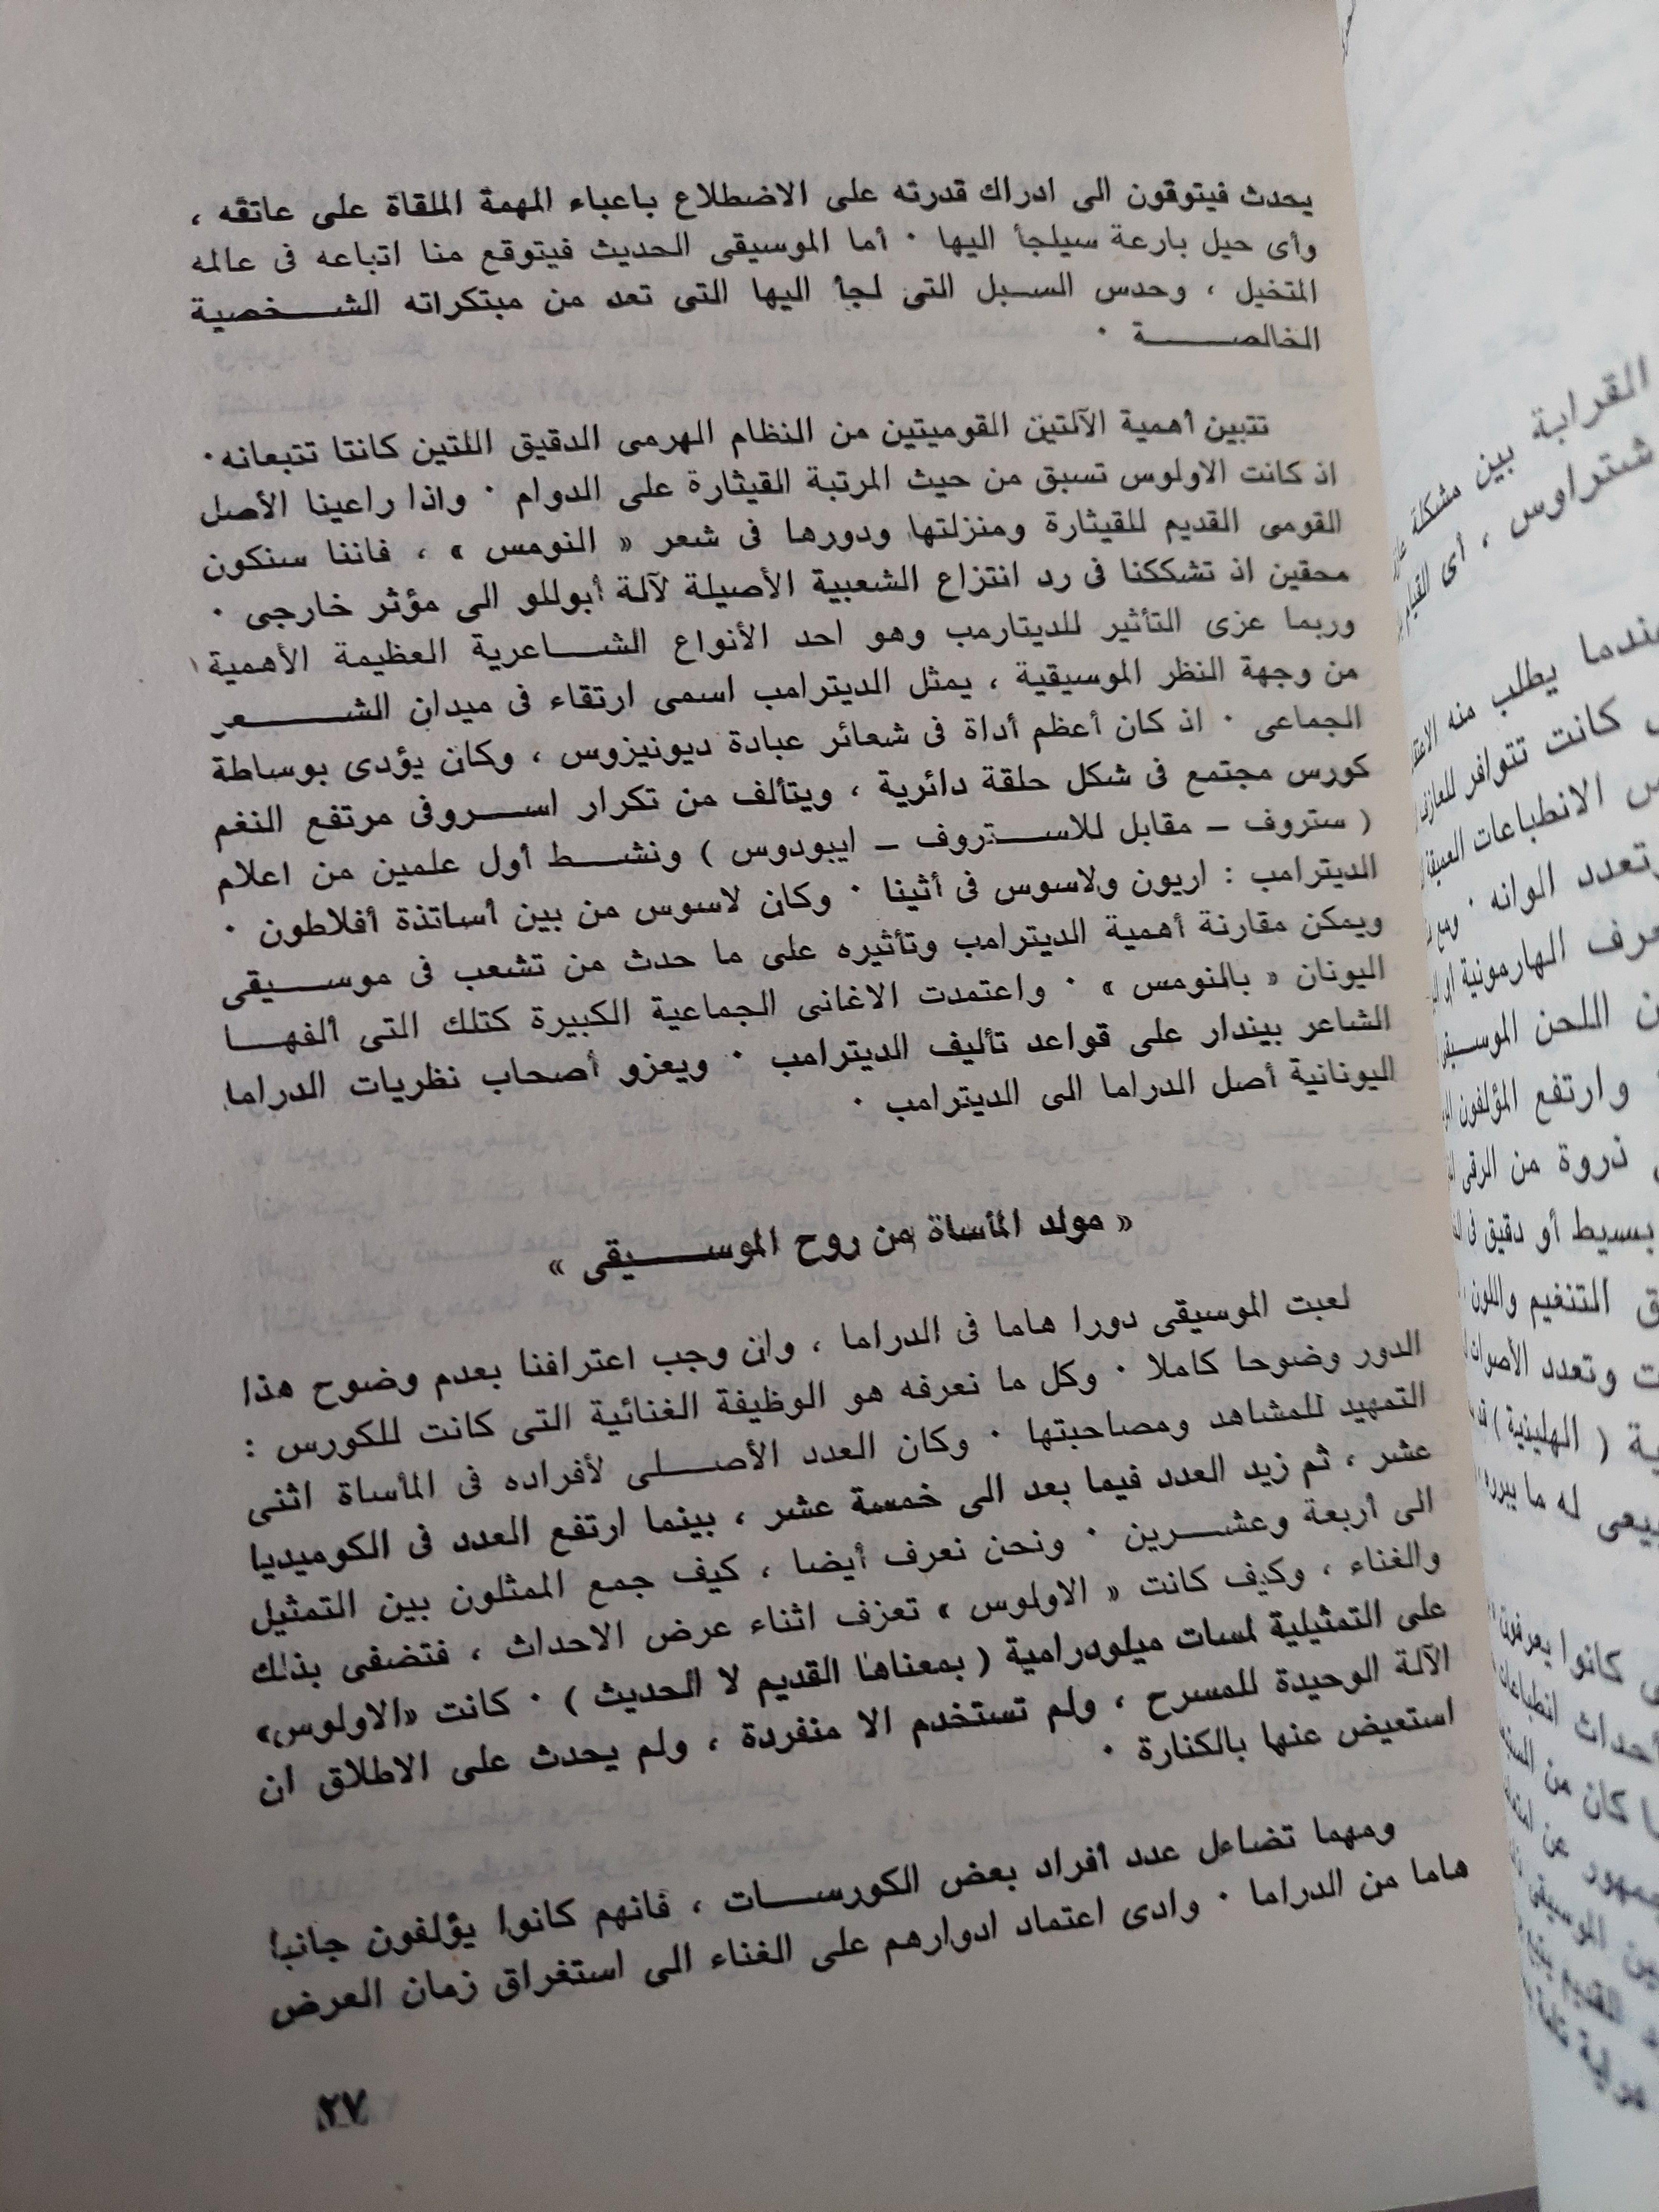 يحدث فيتوقون الى ادراك قدرته على الاضطلاع باعباء المهمة الملقاة على عاتقه ،
وأى حيل بارعة سيلجأ اليها · أما الموسيقى الحديث فيتوقع منا اتباعه فى عالمه
المتخيل ، وحدس السبل التى لجأ اليها التى تعد من مبتكراته الشخصية
الخالصة ·
تتبين أهمية الآلتين القوميتين من النظام الهرمى الدقيق اللتين كانتا تتبعانه ·
اذ كانت الاولوس تسبق من حيث المرتبة القيثارة على الدوام · واذا راعينا الأصل
القومى القديم للقيثارة ومنزلتها ودورها فى شعر « النومس » ، فاننا سنكون
محقين اذ تشككنا فى رد انتزاع الشعبية الأصيلة لآلة أبوللو الى مؤثر خارجى ·
وربما عزى التأثير للديتارمب وهو احد الأنواع الشاعرية العظيمة الأهمية
من وجهة النظر الموسيقية ، يمثل الديترامب اسمى ارتقاء فى ميدان الشعر
الجماعى · اذ كان أعظم أداة فى شعائر عبادة ديونيزوس ، وكان يؤدى بوساطة
كورس مجتمع فى شكل حلقة دائرية ، ويتألف من تكرار اسروفى مرتفع النغم
( ستروف – مقابل للاستروف – ايبودوس ) ونشط أول علمين من اعلام
الديترامب : اريون ولاسوس فى أثينا · وكان لاسوس من بين أساتذة أفلاطون ·
ويمكن مقارنة أهمية الديترامب وتأثيره على ما حدث من تشعب فى موسيقى
اليونان « بالنومس » · واعتمدت الاغانى الجماعية الكبيرة كتلك التى ألفها
الشاعر بيندار على قواعد تأليف الديترامب · ويعزو أصحاب نظريات الدراما
اليونانية أصل الدراما الى الديترامب ·
« مولد المأساة من روح الموسيقى »
لعبت الموسيقى دورا هاما فى الدراما ، وان وجب اعترافنا بعدم وضوح هذا
الدور وضوحا كاملا · وكل ما نعرفه هو الوظيفة الغنائية التى كانت للكورس :
التمهيد للمشاهد ومصاحبتها · وكان العدد الأصلى لأفراده فى المأساة اثنى
عشر ، ثم زيد العدد فيما بعد الى خمسة عشر ، بينما ارتفع العدد فى الكوميديا
الى أربعة وعشرين · ونحن نعرف أيضا ، كيف جمع الممثلون بين التمثيل
والغناء ، وكيف كانت « الاولوس » تعزف اثناء عرض الاحداث ، فتضفى بذلك
على التمثيلية لمسات ميلودرامية ( بمعناها القديم لا الحديث ) · كانت «الاولوس»
الآلة الوحيدة للمسرح ، ولم تستخدم الا منفردة ، ولم يحدث على الاطلاق ان
استعيض عنها بالكنارة ·
ومهما تضاءل عدد أفراد بعض الكورسات ، فانهم كانوا يؤلفون جانبا
هاما من الدراما · وادى اعتماد ادوارهم على الغناء الى استغراق زمان العرض
٢٧
القرابة بين مشكلة
شتراوس ، أى القيام
يطلب منه
كانت تتوافر
الانطباعات العميقة
الوانه ·
الهارمونية
اللحن
وارتفع المؤلفون
ذروة من الرقى
بسيط أو دقيق فى
التنغيم واللون
وتعدد الأصوات
( الهلينية )
له ما يبرره
كانوا يعرفون
انطباعات
كان من